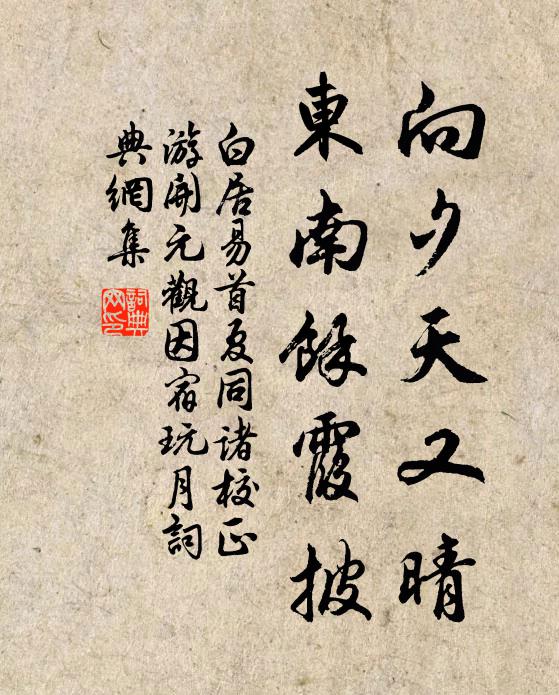 向夕天又晴
東南餘霞披
白居易首夏同諸校正
游開元觀因宿玩月詞
典網集
詞典
网印